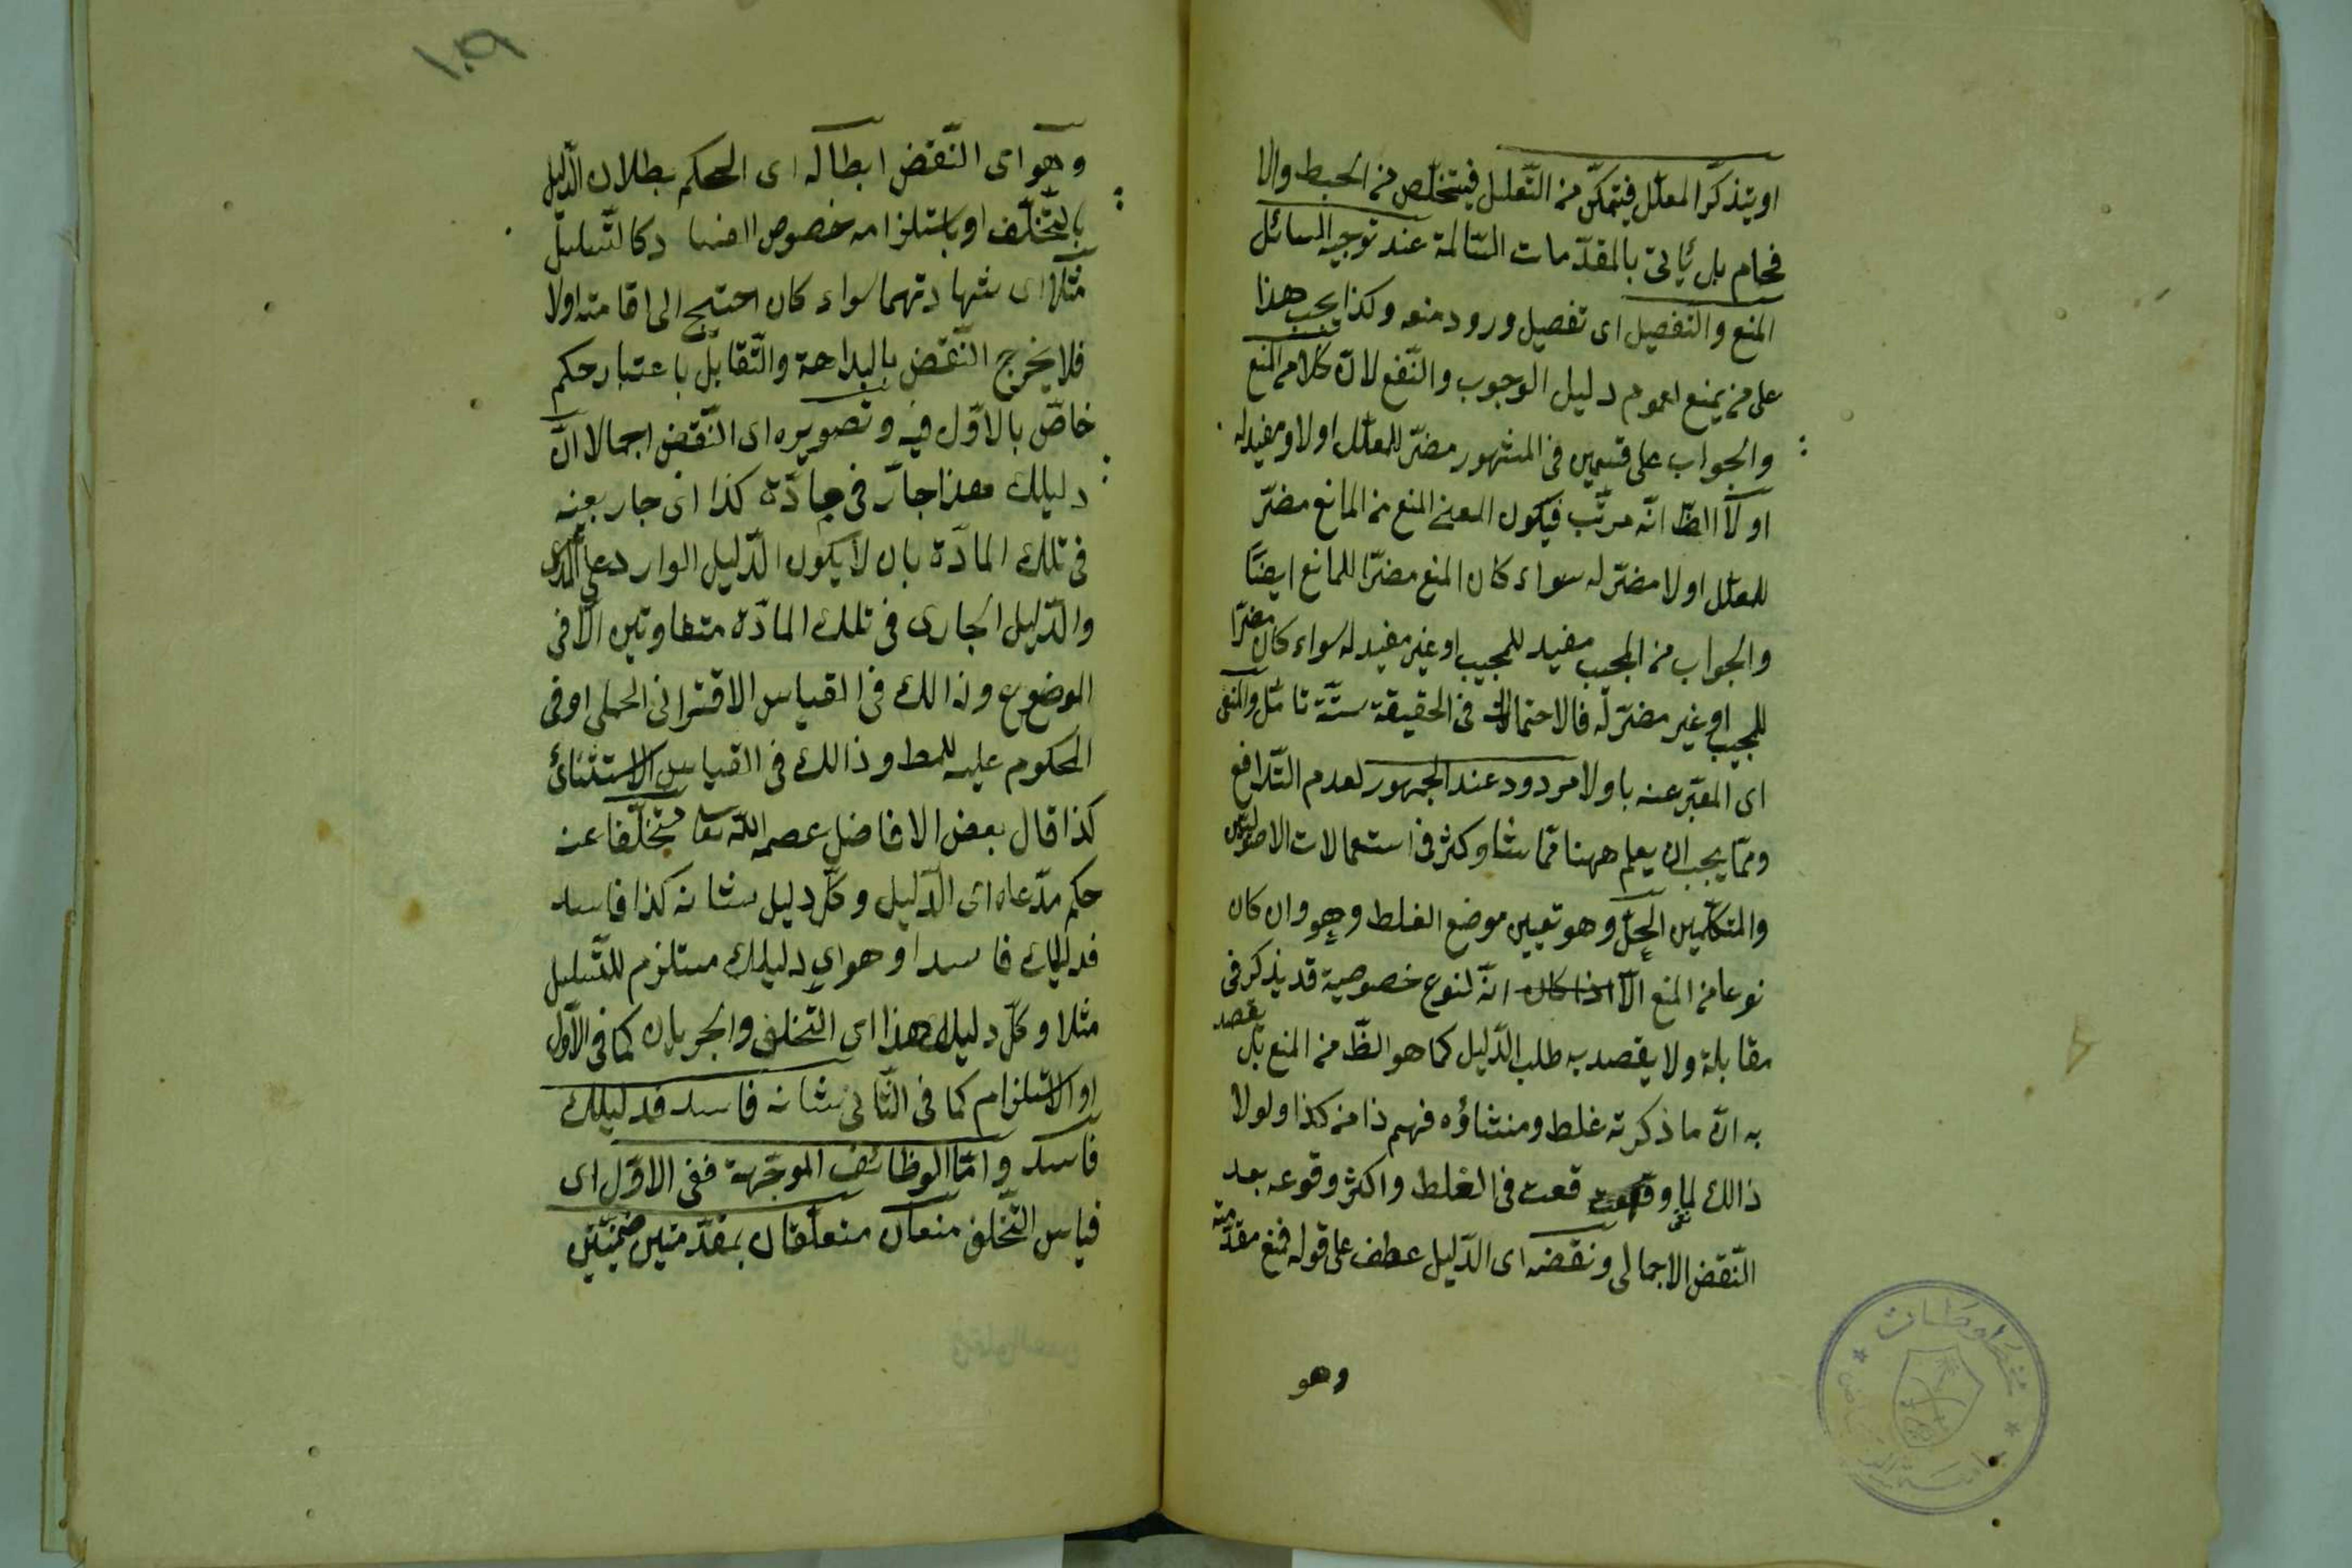 او يتذكّر المعلّل فيتمكّن من التّعليل فيتخلّص من الخبط والا
فحام بل يأتى بالمقدّمات السّالمة عند توجيه السائل
المنع والتفصيل اى تفصيل ورود منعه وكذا يجب هذا
على من يمنع لعموم دليل الوجوب والنّفع لانّ كلام المنع
والجواب على قسمين فى المشهور مضرّ للمعلّل اولا ومفيد له
اولاً الظّ انّه مرتّب فيكون المعنى المنع من المانع مضرّ
للمعلّل اولا مضرّ له سواء كان المنع مضرّا للمانع ايضًا
والجواب من المجيب مفيد للمجيب او غير مفيد له سواء كان مضرّا
للمجيب او غير مضرّ له فالاحتمالات فى الحقيقة ستّة تأمّل والمنفى
اى المعبّر عنه باولا مردود عند الجمهور لعدم التّدافع
وممّا يجب ان يعلم ههنا ممّا شاء وكثر فى استعمالات الاصوليّين
والمتكلّمين الحلّ وهو تعيين موضع الغلط وهو وان كان
نوعا من المنع الّا اذا كان انّه لنوع خصوصية قد يذكر فى
مقابلة ولا يقصد به طلب الدّليل كما هو الظّ من المنع بل يقصد
به انّ ما ذكرته غلط ومنشاؤه فهم ذا من كذا ولولا
ذالك لما وقعت فى الغلط واكثر وقوعه بعد
النّقض الاجمالى ونقضه اى الدّليل عطف على قوله فمنع مقدّمته
وهو
١٠٩
وهو اى النّقض ابطاله اى الحكم ببطلان الدّليل
بالتّخلّف او باستلزامه خصوص الفساد كالتّسلسل
مثلا اى شهادتهما سواء كان احتيج الى اقامته اولا
فلا يخرج النّقض بالبداهة والتّقابل باعتبار حكم
خاصّ بالاوّل فيه وتصويره اى النّقض اجمالا انّ
دليلك هذا جارّ فى مادّة كذا اى جار بعينه
فى تلك المادّة بان لا يكون الدّليل الوارد على المدّعى
والدّليل الجارى فى تلك المادّة متفاوتين الّا فى
الموضوع وذالك فى القياس الاقترانى الحملى او فى
المحكوم عليه للمط وذالك فى القياس الاستثنائى
كذا قال بعض الافاضل عصمه اللّه تعا متخلّفا عنه
حكم مدّعاه اى الدّليل وكلّ دليل شانه كذا فاسد
فدليلك فاسد او هو اى دليلك مستلزم للتّسلسل
مثلا وكلّ دليل هذا اى التّخلف والجريان كما فى الاوّل
او الاستلزام كما فى الثّانى شانه فاسد فدليلك
فاسد وامّا الوظائف الموجّهة ففى الاوّل اى
قياس التّخلف منعان متعلّقان بمقدّمتين ضمنيّتين